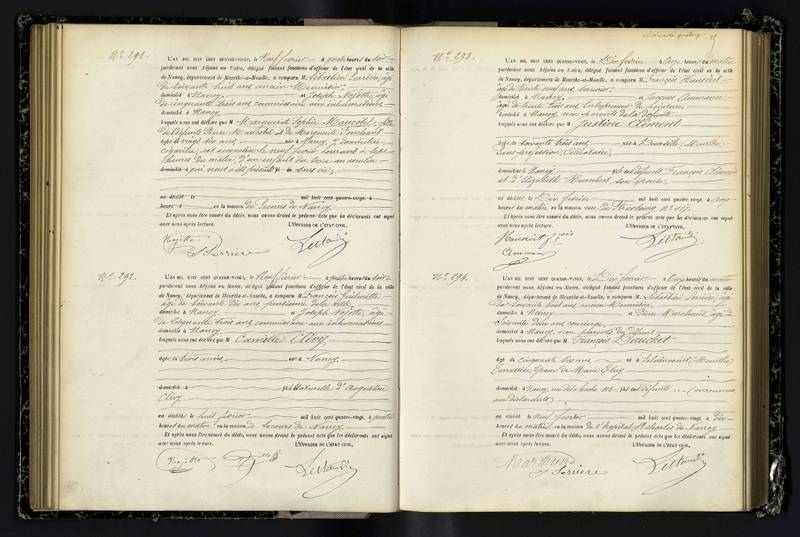 N° 291.
L'AN MIL HUIT CENT QUATRE-VINGT, le Neuf février à quatre heures du soir
pardevant nous Adjoint au Maire, délégué faisant fonctions d'officier de l'état civil de la ville
de Nancy, département de Meurthe-et-Moselle, a comparu M. Sébastien âgé
de soixante huit ans ancien
domicilié à Nancy et Joseph Nojotte, âgé
de cinquante trois ans commissaire aux inhumations
domicilié à Nancy
lesquels nous ont déclaré que M Marguerite Sophie Maucotel, fille
des défunts Maucotel et de Marguerite
âgée de vingt six ans née à Nancy, y domiciliée
est accouchée le neuf février courant à sept
heures du matin, d'un enfant du sexe masculin
qui nous a été présenté sans vie;
est décédé le mil huit cent quatre-vingt, à
heures en la maison de Secours de Nancy
Et après nous être assuré du décès, nous avons dressé le présent acte que les déclarants ont signé
avec nous après lecture. L'OFFICIER DE L'ÉTAT CIVIL,
Nojotte
S. Perrière
N° 292.
L'AN MIL HUIT CENT QUATRE-VINGT, le Neuf février à quatre heures du soir
pardevant nous Adjoint au Maire, délégué faisant fonctions d'officier de l'état civil de la ville
de Nancy, département de Meurthe-et-Moselle, a comparu M. François
âgé de soixante dix ans pensionné de la ville
domicilié à Nancy et Joseph Nojotte, âgé
de cinquante trois ans commissaire aux inhumations
domicilié à Nancy
lesquels nous ont déclaré que M Camille Clévy
âgé de trois mois né à Nancy
domicilié à fils Naturelle d'Augustine
Clévy
est décédé le huit février mil huit cent quatre-vingt, à quatre
heures du matin en la maison de Secours de Nancy
Et après nous être assuré du décès, nous avons dressé le présent acte que les déclarants ont signé
avec nous après lecture. L'OFFICIER DE L'ÉTAT CIVIL,
Nojotte
N° 293.
L'AN MIL HUIT CENT QUATRE-VINGT, le Dix février à onze heures du matin
pardevant nous Adjoint au Maire, délégué faisant fonctions d'officier de l'état civil de la ville
de Nancy, département de Meurthe-et-Moselle, a comparu M. François
âgé de trente neuf ans, serrurier
domicilié à Nancy et Jacques Ammann
âgé de trente trois ans Entrepreneur de peintures
domicilié à Nancy, non parents de la défunte
lesquels nous ont déclaré que M Justine Clément
âgée de soixante trois ans née à Meurthe
sans profession, Célibataire,
domiciliée à Nancy fille des défunts François Clément
et d'Elizabeth Humbert son épouse.
est décédée le Dix février mil huit cent quatre-vingt, à
heures du matin, en la maison rue de Strasbourg N°
Et après nous être assuré du décès, nous avons dressé le présent acte que les déclarants ont signé
avec nous après lecture. L'OFFICIER DE L'ÉTAT CIVIL,
Ammann
N° 294.
L'AN MIL HUIT CENT QUATRE-VINGT, le Dix février à onze heures du matin
pardevant nous Adjoint au Maire, délégué faisant fonctions d'officier de l'état civil de la ville
de Nancy, département de Meurthe-et-Moselle, a comparu M. Sébastien âgé
de soixante huit ans ancien
domicilié à Nancy et Pierre Marchand, âgé de
soixante deux ans concierge
domicilié à Nancy, non parents du défunt
lesquels nous ont déclaré que M François Bauchet
âgé de cinquante six ans né à Meurthe
époux de Marie
domicilié à Nancy fils des défunts ... (inconnus
aux déclarants)
est décédé le Neuf février mil huit cent quatre-vingt, à dix
heures du matin en la maison de l'hôpital St Charles de Nancy
Et après nous être assuré du décès, nous avons dressé le présent acte que les déclarants ont signé
avec nous après lecture. L'OFFICIER DE L'ÉTAT CIVIL,
Marchand
S. Perrière